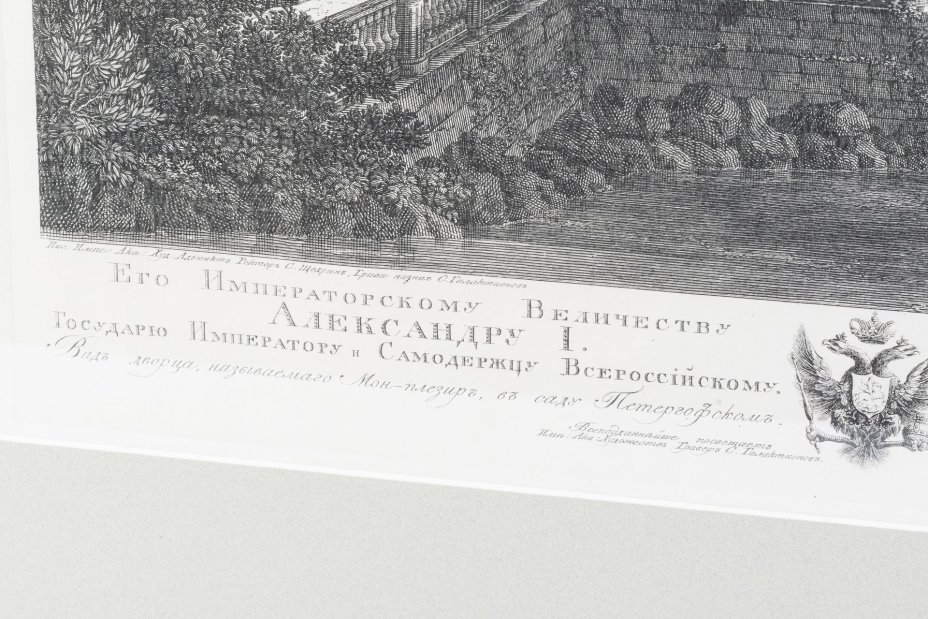 Пис. Импе: Ака: Худ. Адъюнктъ Ректоръ С. Щедринъ, Грави С. Галактионовъ
Его Императорскому Величеству
Александру I.
Государю Императору и Самодержцу Всероссійскому.
Видъ дворца, называемаго Мон-плезиръ, въ саду Петергофскомъ.
Всеподданнѣйше посвещаетъ
Имп: Ака Художествъ Граверъ С. Галактионовъ.